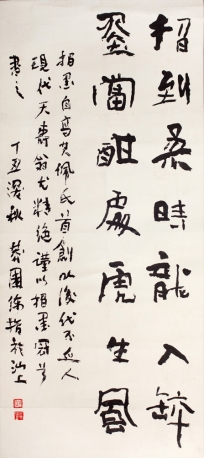 指到柔時龍入缽
墨當酣處虎生風
指墨自高其佩氏首創以後代不乏人
現代天壽翁尤精絕謹以指墨
書之 丁丑深秋 徐指於汕上